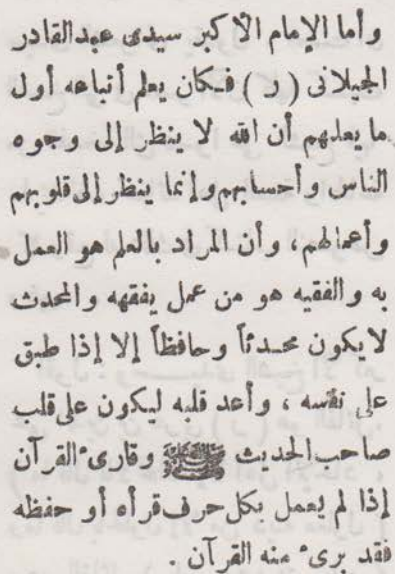 وأما الإمام الأكبر سيدى عبدالقادر
الجيلانى (ر) فكان يعلم أتباعه أول
ما يعلمهم أن الله لا ينظر إلى وجوه
الناس وأحسابهم وإنما ينظر إلى قلوبهم
وأعمالهم، وأن المراد بالعلم هو العمل
به والفقيه هو من عمل بفقهه والمحدث
لا يكون محدثاً وحافظاً إلا إذا طبق
على نفسه ، وأعد قلبه ليكون على قلب
صاحب الحديث ﷺ وقارىء القرآن
إذا لم يعمل بكل حرف قرأه أو حفظه
فقد برىء منه القرآن .